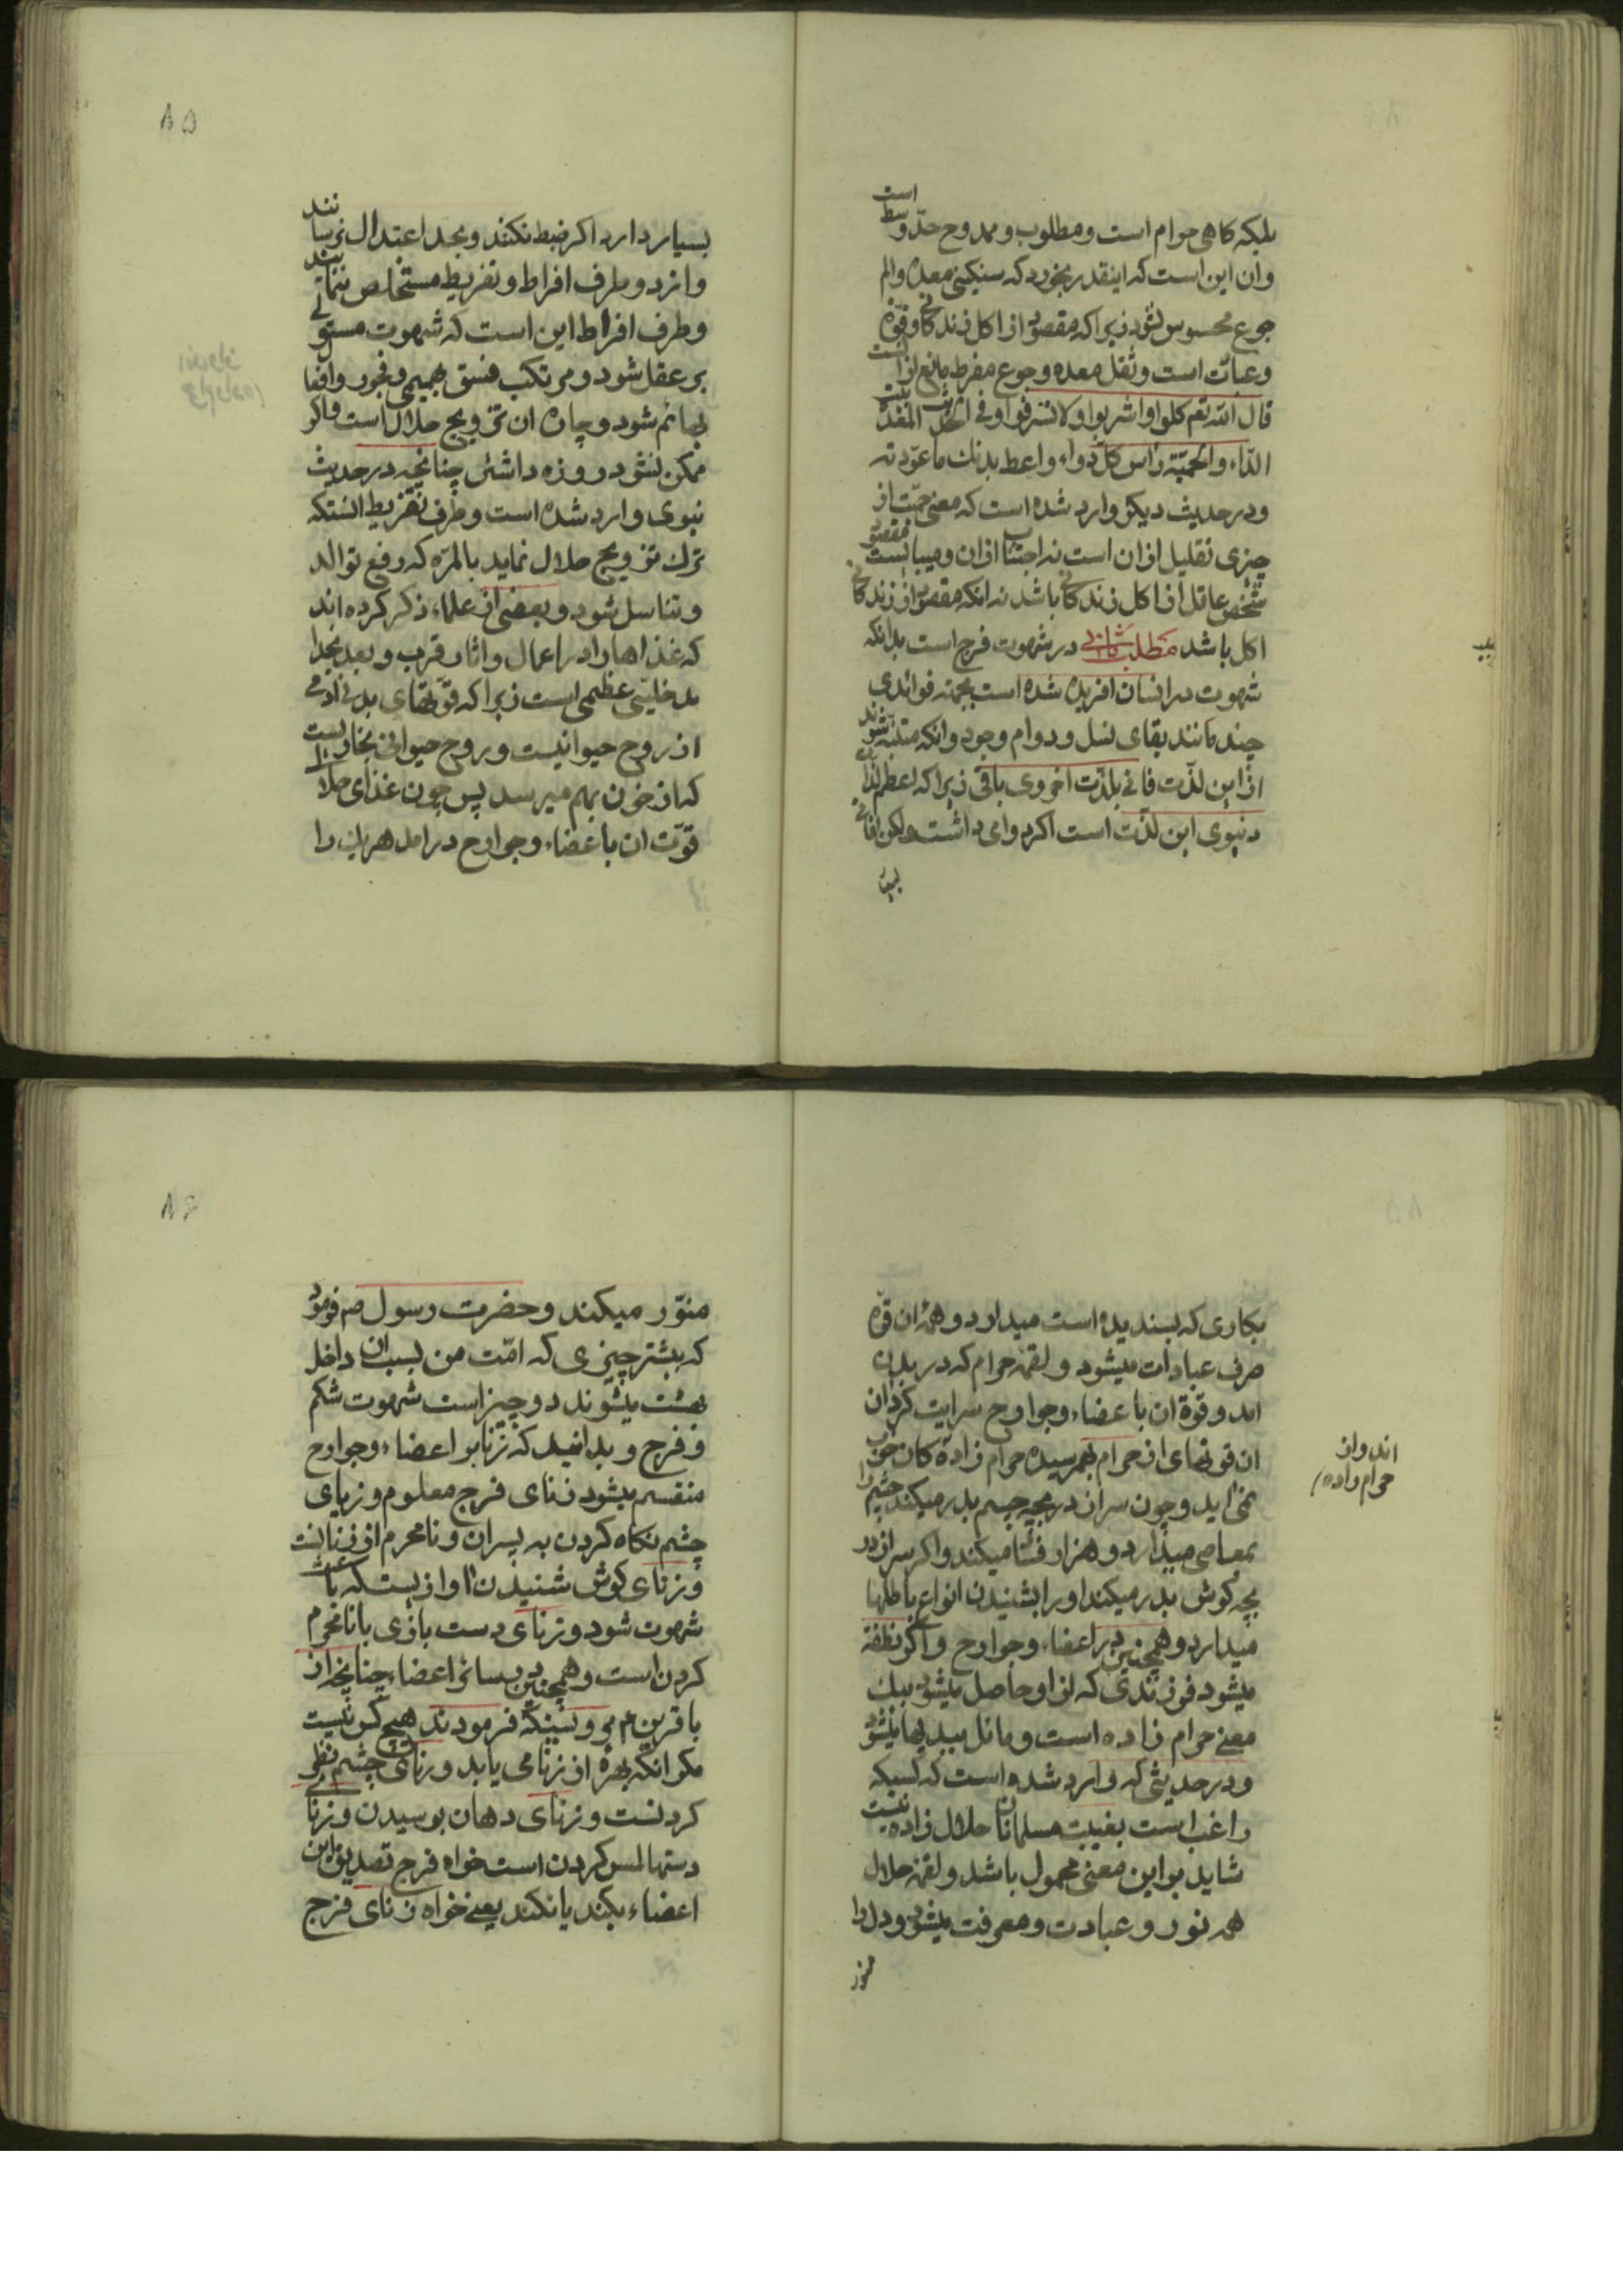 بلکه کاهی حرام است و مطلوب و ممدوح حدّ وسط است
و ان این است که اینقدر بخورد که سنکینی معده و الم
جوع محسوس نشود زیرا که مقصود از اکل زندکانی و قوّة
و عبادت است و ثقل معده و جوع مفرط مانع از انست
قال الله تعم کلوا و اشربوا و لا تسرفوا و فی الحدیث المعدة بیت
الدّاء و الحمیّة راس کل دواء و اعط بدنك ما عوّدته
و در حدیث دیکر وارد شده است که معنی حمیّت از
چیزی تقلیل از ان است نه اجتناب از ان و میبایست مقصود
شخص عاقل از اکل زندکانی باشد نه انکه مقصود از زندکانی
اکل باشد مطلب ثانی در شهوت فرج است بدانکه
شهوت در انسان افریده شده است بجهته فوائدی
چند مانند بقای نسل و دوام وجود و انکه متنبّه شوند
از این لذّت فانی بلذّت اخروی باقی زیرا که اعظم لذّات
دنیوی این لذّت است اکر دوامی داشت ولکن افاتی
بسیار
۸۵
بسیار دارد اکر ضبط نکنند و بحد اعتدال نرسانند
و از دو طرف افراط و تفریط مستخلص ننمایند
و طرف افراط این است که شهوت مستولی
بر عقل شود و مرتکب فسق بهیمی و فجور و افعال
بهائم شود و چاره ان تزویج حلال است و اکر
ممکن نشود روزه داشتن چنانچه در حدیث
نبوی وارد شده است و طرف تفریط انستکه
ترك تزویج حلال نماید بالمرّه که رفع توالد
و تناسل شود و بعضی از علماء ذکر کرده اند
که غذاها را در اعمال و اثار قرب و بعد بخدا
مدخلیّتی عظیمی است زیرا که قوّتهای بدنی ادمی
از روح حیوانیست و روح حیوانی بخاریست
که از خون بهم میرسد پس چون غذای حلال
قوّت ان باعضاء و جوارح درامد هر یك را
بکاری که پسندیده است میدارد و همهٔ ان قوّه
صرف عبادات میشود و لقمهٔ حرام که در بدن
امد و قوّة ان باعضاء و جوارح سرایت کرد از ان
ان قوتهای از حرام بهمرسیده حرام زادهٔ کان خوب
نمی اید و چون سر از دریچه چشم بدر میکند چشم را
بمعاصی میدارد و هزار فتنها میکند و اکر سر از در
یچه کوش بدر میکند او را بشنیدن انواع باطلها
میدارد و همچنین در اعضاء و جوارح و اکر نطفه
میشود فرزندی که از او حاصل میشود بیك
معنی حرام زاده است و مائل ببدیها میشود
و در حدیثی که وارد شده است که کسیکه
راغب است بغیبت مسلمانان حلال زاده نیست
شاید بر این معنی محمول باشد و لقمهٔ حلال
همه نور و عبادت و معرفت میشود و دل را
منور
۸۶
منوّر میکند و حضرت رسول صم فرمود
که بیشتر چیزی که امّت من بسبب ان داخل
میشوند دو چیز است شهوت شکم
و فرج و بدانید که زنا بر اعضاء و جوارح
منقسم میشود زنای فرج معلوم و زنای
چشم نکاه کردن به پسران و نامحرم از زنانست
و زنای کوش شنیدن اوازیست که باعث
شهوت شود و زنای دست بازی با نامحرم
کردن است و همچنین بسائر اعضاء چنانچه از
باقرین عم مرویست که فرمودند هیچ کس نیست
مکر انکه بهرهٔ از زنا می یابد و زنای چشم نظر
کردنست و زنای دهان بوسیدن و زنای
دستها لمس کردن است خواه فرج تصدیق این
اعضاء بکند یا نکند یعنی خواه زنای فرج